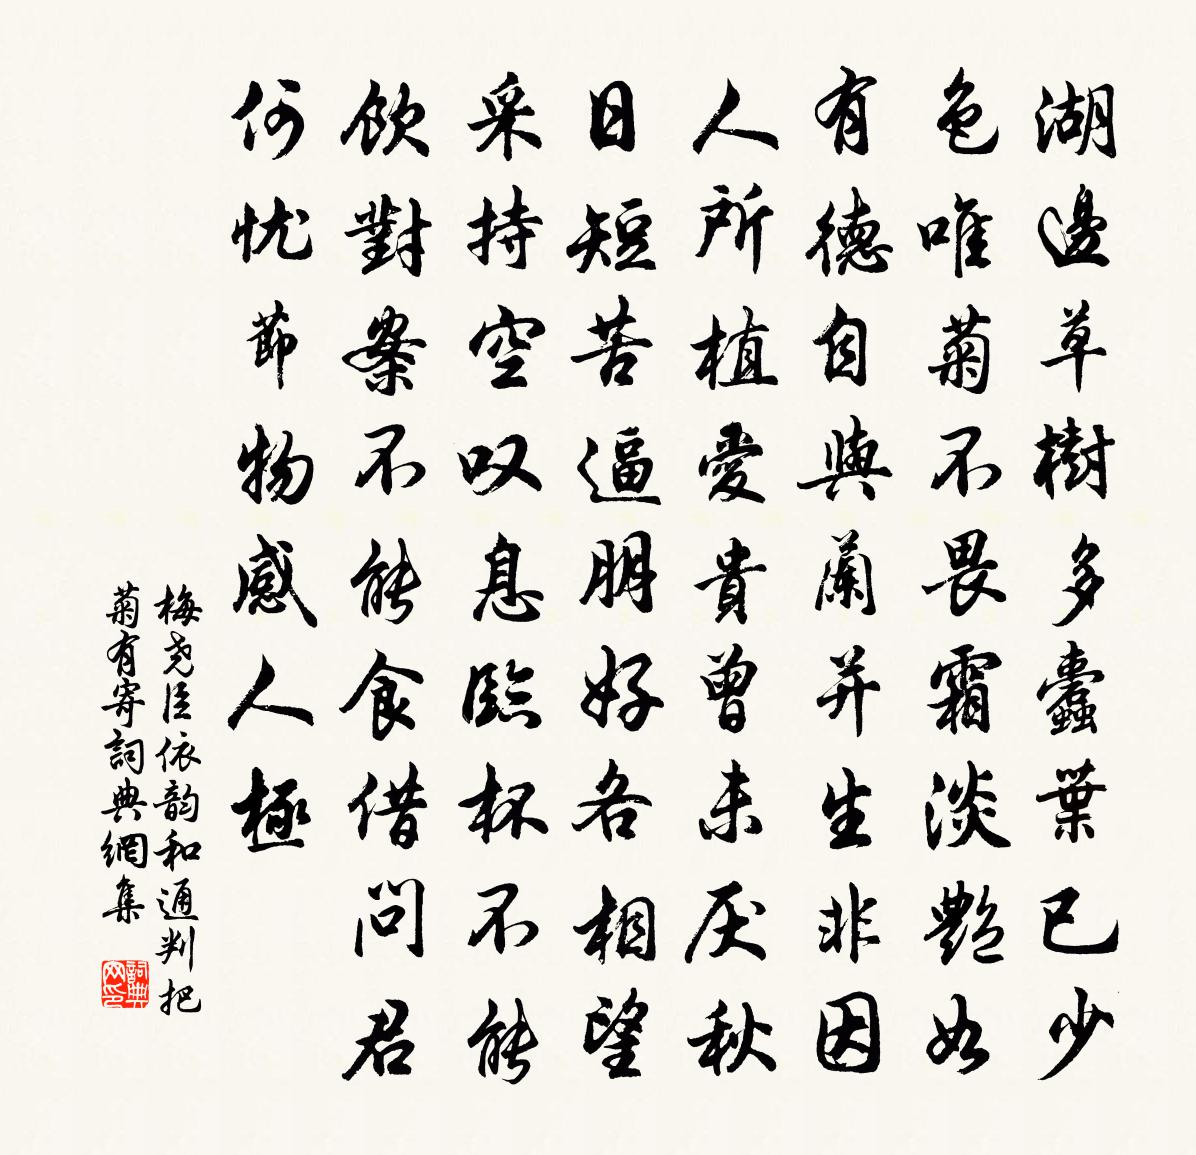 湖邊草樹多蠹葉已少
色唯菊不畏霜淡艷如
有德自與蘭并生非因
人所植愛貴曾未厌秋
日短苦逼朋好各相望
采持空叹息臨杯不能
飲對案不能食借問君
何忧節物感人極
梅尧臣依韵和通判把
菊有寄詞典網集
詞典网印